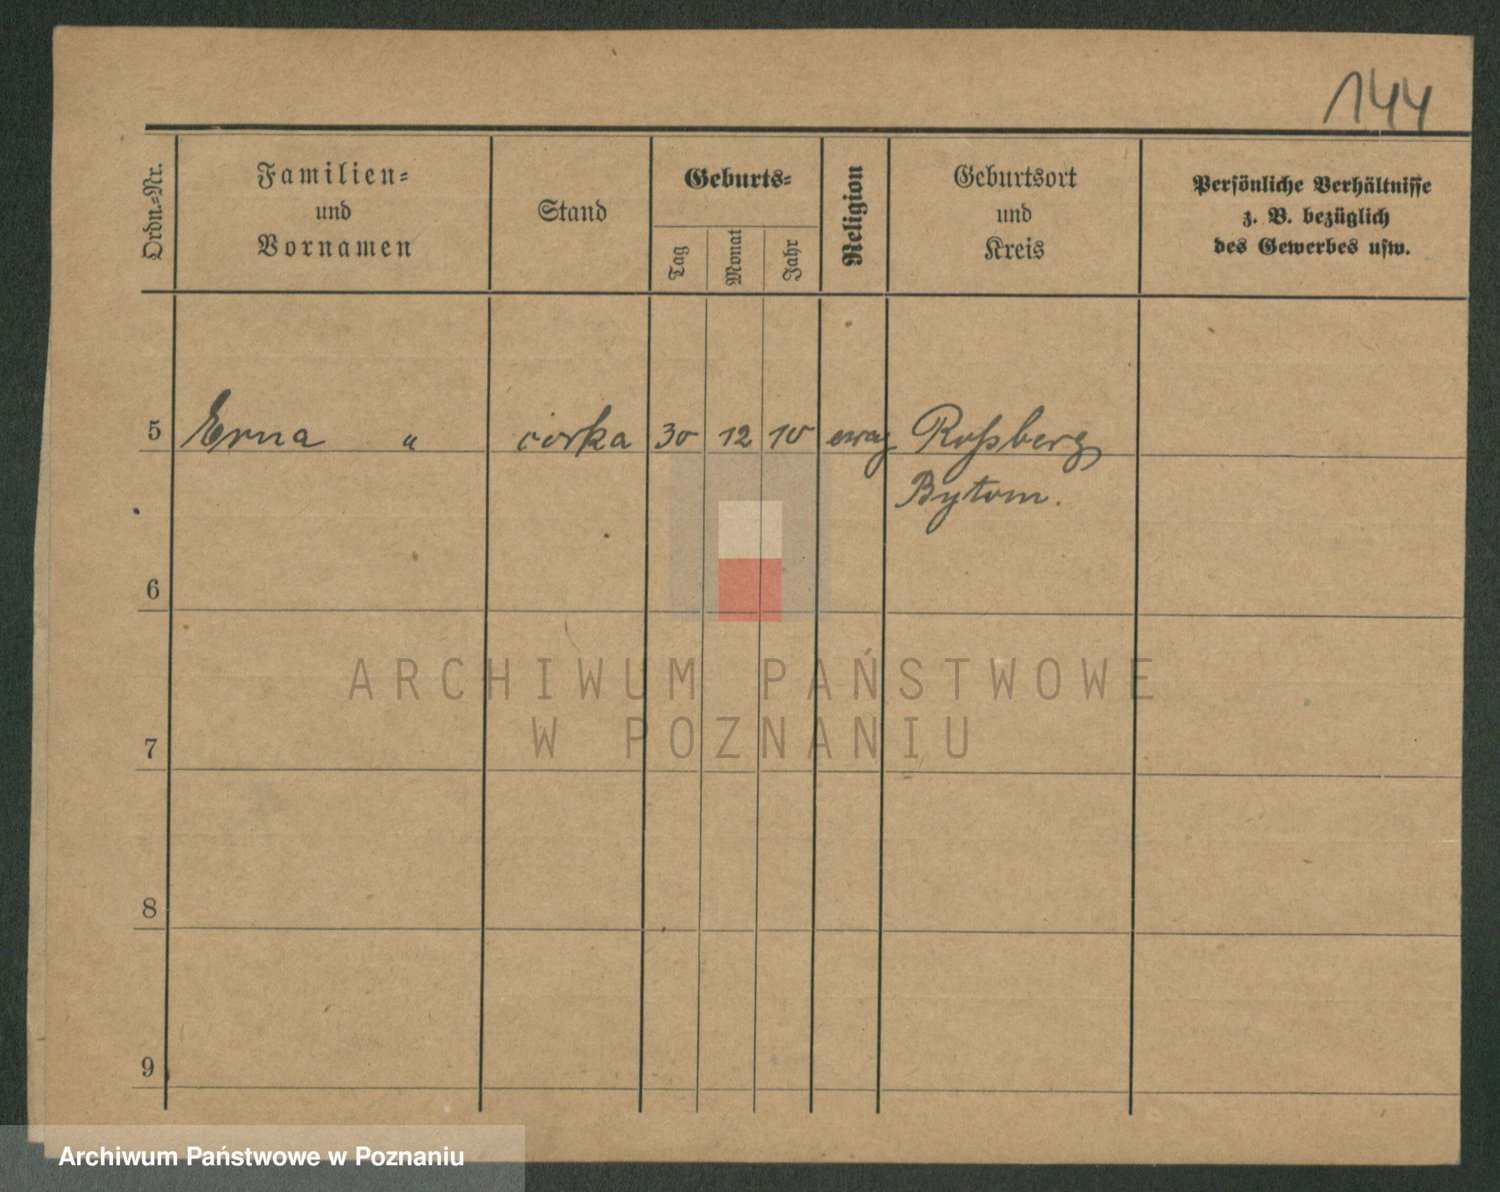 144
Ordn.-Nr.
Familien-
und
Vornamen
Stand
Geburts-
Tag
Monat
Jahr
Religion
Geburtsort
und
Kreis
Persönliche Verhältnisse
z. B. bezüglich
des Gewerbes usw.
5 Erna " córka 30 12 10 ewag Roßberg
Bytom.
6
7
8
9
ARCHIWUM PAŃSTWOWE
W POZNANIU
Archiwum Państwowe w Poznaniu